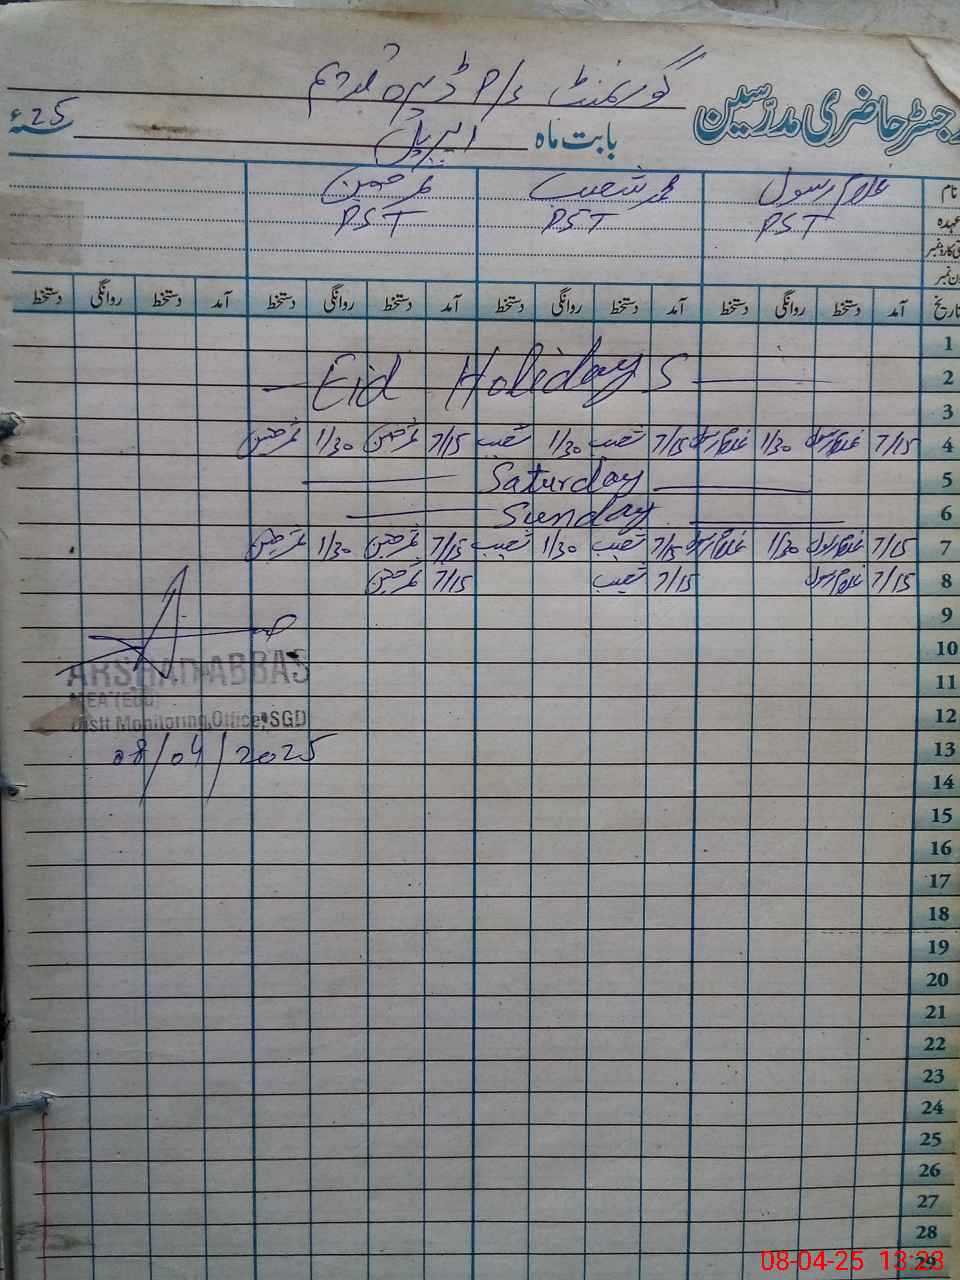 رجسٹر حاضری مدرسین گورنمنٹ P/S ڈیرہ
بابت ماہ اپریل 25ء
نام غلام رسول محمد شعیب
عہدہ PST PST PST
تاریخ آمد دستخط روانگی دستخط آمد دستخط روانگی دستخط آمد دستخط روانگی دستخط آمد دستخط روانگی دستخط
1
2 Eid Holidays
3
4 7/15 غلام رسول 1/30 غلام رسول 7/15 شعیب 1/30 شعیب 7/15 1/30
5 Saturday
6 Sunday
7 7/15 غلام رسول 1/30 غلام رسول 7/15 شعیب 1/30 شعیب 7/15 1/30
8 7/15 غلام رسول 7/15 شعیب 7/15
9
10
ARSHAD ABBAS
11
MEA (EDU)
12
Distt Monitoring Office, SGD
13
08/04/2025
14
15
16
17
18
19
20
21
22
23
24
25
26
27
28
29
08-04-25 13:23